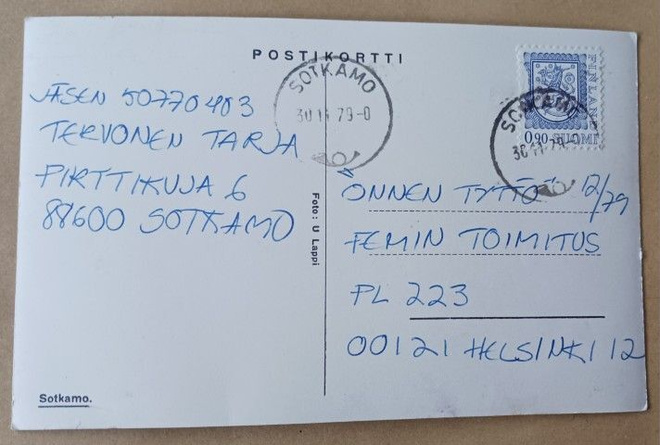 POSTIKORTTI
SOTKAMO
30.11.79-0
JÄSEN 50770403
TERVONEN TARJA
PIRTTIKUJA 6
88600 SOTKAMO
Foto: U Lappi
Sotkamo.
FINLAND
0,90 SUOMI
SOTKAMO
30.11.79-0
"ONNEN TYTTÖ" 12/79
FEMIN TOIMITUS
PL 223
00121 HELSINKI 12